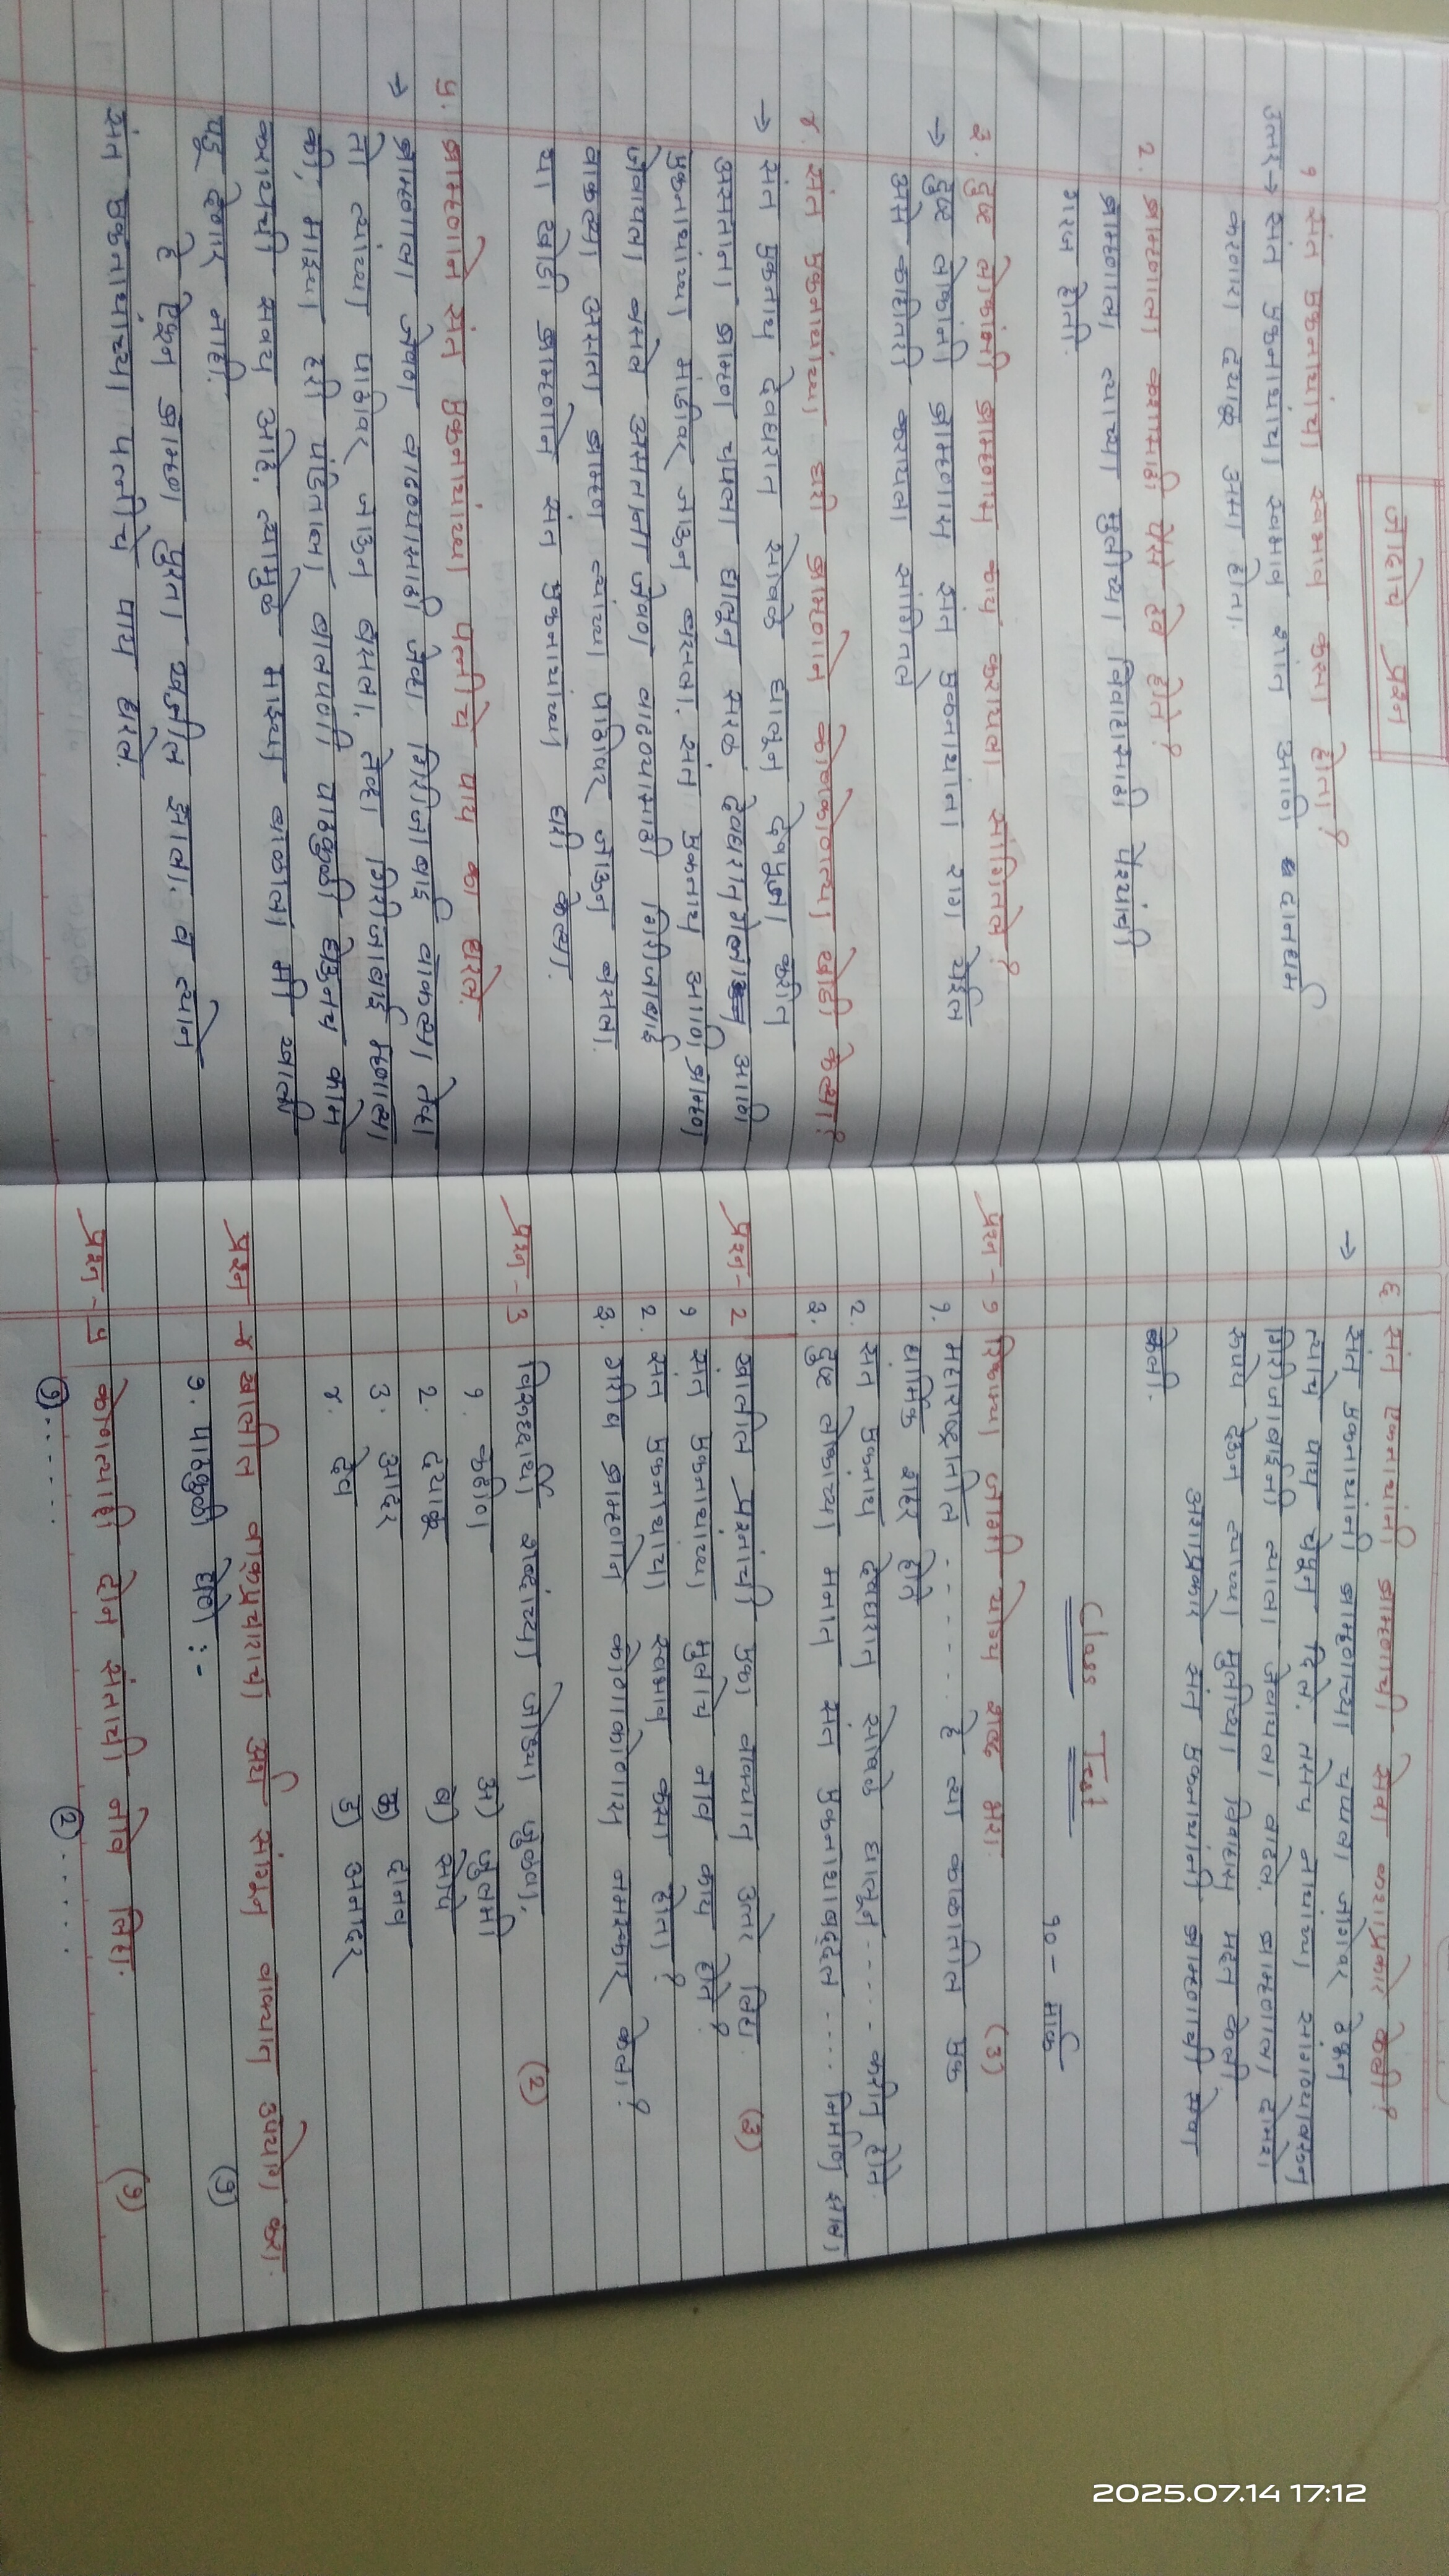 जादाचे प्रश्न
१ संत एकनाथांचा स्वभाव कसा होता?
उत्तर→ संत एकनाथांचा स्वभाव शांत आणि दानधर्म
करणारा दयाळू असा होता.
2. ब्राम्हणाला कशासाठी पैसे हवे होते?
ब्राम्हणाला त्याच्या मुलीच्या विवाहासाठी पैश्यांची
गरज होती.
३. दुष्ट लोकांनी ब्राम्हणास काय करायला सांगितले?
→ दुष्ट लोकांनी ब्राम्हणास संत एकनाथांना राग येईल
असे काहीतरी करायला सांगितले
४. संत एकनाथांच्या घरी ब्राम्हणाने कोणकोणत्या खोडी केल्या?
→ संत एकनाथ देवघरात सोवळे घालून देवपूजा करीत
असताना ब्राम्हण चपला घालून सरळ देवघरात गेला आणि
एकनाथांच्या मांडीवर जाऊन बसला. संत एकनाथ आणि ब्राम्हण
जेवायला बसले असताना जेवण वाढण्यासाठी गिरीजाबाई
वाकल्या असता ब्राम्हण त्यांच्या पाठीवर जाऊन बसला.
या खोडी ब्राम्हणाने संत एकनाथांच्या घरी केल्या.
५. ब्राम्हणाने संत एकनाथांच्या पत्नीचे पाय का धरले.
→ ब्राम्हणाला जेवण वाढण्यासाठी जेव्हा गिरीजाबाई वाकल्या तेव्हा
तो त्यांच्या पाठीवर जाऊन बसला, तेव्हा गिरीजाबाई म्हणाल्या
की, माझ्या हरी पंडिताला बालपणी पाठकुळी घेऊनच काम
करायची सवय आहे, त्यामुळे माझ्या बाळाला मी खाली
पडू देणार नाही.
हे ऐकून ब्राम्हण पुरता खजील झाला. व त्याने
संत एकनाथांच्या पत्नीचे पाय धरले.
६ संत एकनाथांनी ब्राम्हणाची सेवा कशाप्रकारे केली?
→ संत एकनाथांनी ब्राम्हणाच्या चपला जागेवर ठेऊन
त्याचे पाय चेपून दिले. तसेच नाथांच्या सांगण्यावरून
गिरीजाबाईंनी त्याला जेवायला वाढले. ब्राम्हणाला दोनशे
रुपये देऊन त्याच्या मुलीच्या विवाहास मदत केली.
अशाप्रकारे संत एकनाथांनी ब्राम्हणाची सेवा
केली.
Class Test
१० - मार्क
प्रश्न - १ रिकाम्या जागी योग्य शब्द भरा. (३)
१. महाराष्ट्रातील . . . . . . . . हे त्या काळातील एक
धार्मिक शहर होते
२. संत एकनाथ देवघरात सोवळे घालून . . . . . करीत होते.
३. दुष्ट लोकांच्या मनात संत एकनाथाबद्दल . . . . निर्माण झाला
प्रश्न - 2 खालील प्रश्नांची एका वाक्यात उत्तरे लिहा. (३)
१ संत एकनाथांच्या मुलाचे नाव काय होते?
२. संत एकनाथाचा स्वभाव कसा होता?
३. गरीब ब्राम्हणाने कोणाकोणास नमस्कार केला?
प्रश्न - 3 विरुध्दार्थी शब्दांच्या जोड्या जुळवा. (2)
१. कठोर अ) जुलमी
२. दयाळू ब) सोपे
३. आदर क) दानव
४. देव ड) अनादर
प्रश्न - ४ खालील वाक्प्रचाराचा अर्थ सांगून वाक्यात उपयोग करा.
१. पाठकुळी घेणे :- (१)
प्रश्न - ५ कोणत्याही दोन संताची नावे लिहा. (१)
① . . . . . . . ② . . . . . .
2025.07.14 17:12